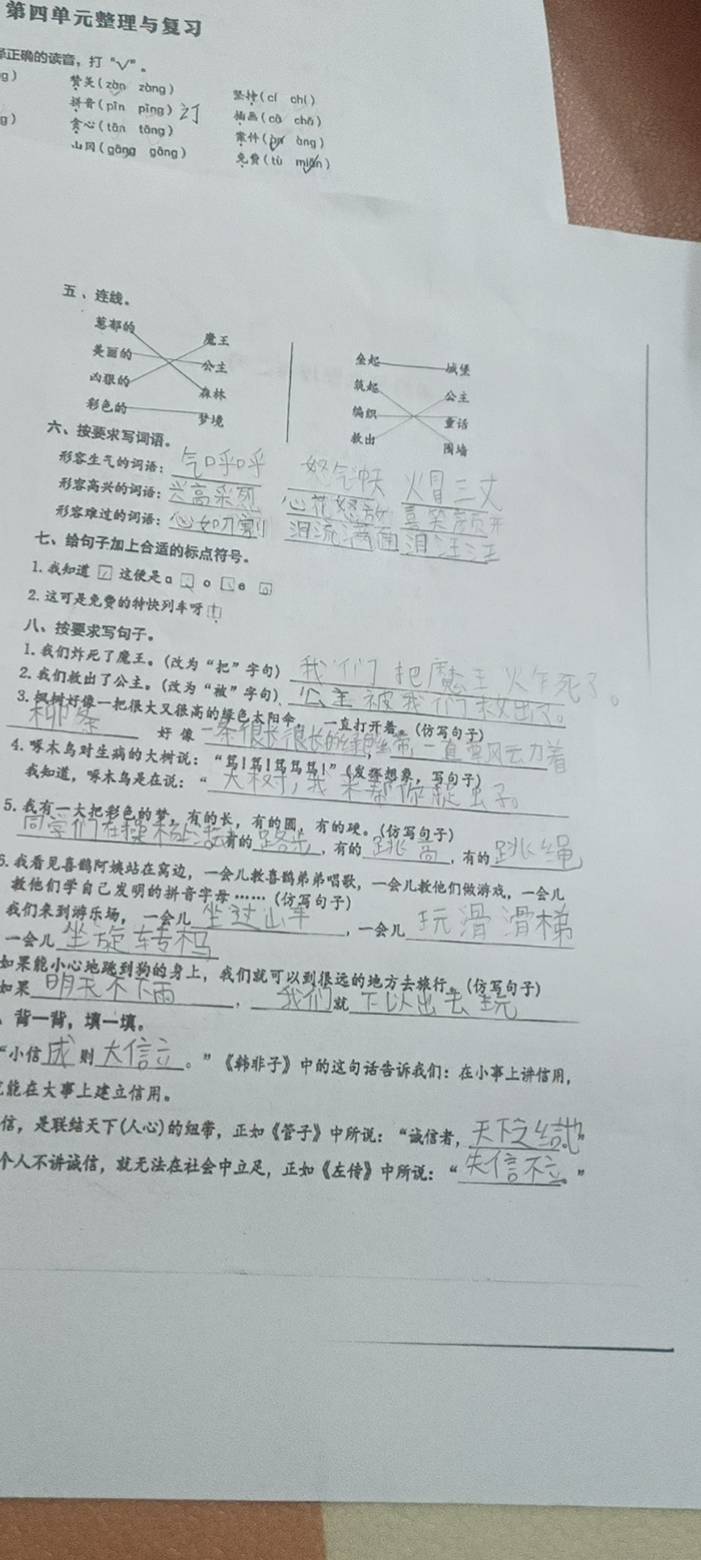 第四单元整理与复习
正确的读音，打“√”。
g） 赞美(zàn zàng) 坚持(cí chí)
拼音(pīn pīng) 订 插画(cā chā)
g） 贪心(tān tāng) 案件(àn àng)
山冈(gāng gāng) 免费(tù miǎn)
五、连线。
葱郁的 魔王
美丽的 公主
凶狠的 森林
彩色的 梦境
垒起 城堡
筑起 公主
编织 童话
救出 围墙
六、按要求写词语。
形容生气的词语：气口乎口乎 怒气冲天 火冒三丈
形容高兴的词语：兴高采烈 心花怒放 喜笑颜开
形容难过的词语：心如刀割 泪流满面 泪汪汪
七、给句子加上合适的标点符号。
1.我知道 这便是a o e
2.这可是免费的特快列车呀
八、按要求写句子。
1.我们炸死了魔王。(改为“把”字句) 我们把魔王火乍死了。
2.我们救出了公主。(改为“被”字句) 公主被我们救出了。
3.枫树好像一把很大又很高的绿色太阳伞，一直打开着。(仿写句子)
柳条 好像 一条很长很长的绿色
4.啄木鸟对生病的大树说：“笃!笃!笃笃笃!”(发挥想象，写句子)
我知道，啄木鸟是在说：“大树，我来帮你捉虫子。
5.我有一大把彩色的梦，有的长，有的圆，有的硬。(仿写句子)
同学们在操场上 有的 跑步，有的 跳高，有的 跳绳
6.我看见喜鹊阿姨站在窝边，一会儿教喜鹊弟弟唱歌，一会儿教他们做游戏，一会儿
教他们学自己发明的拼音字母……(仿写句子)
我们来到游乐场，一会儿坐过山车，一会儿玩滑滑梯
一会儿坐旋转木马
如果能小心地跳到狗的身上，我们就可以到很远的地方去旅行。(仿写句子)
如果明天不下雨，我们就可以出去玩
、背一背，填一填。
“小信成则大信立。”《韩非子》中的这句话告诉我们：在小事上讲信用，
能在大事上建立信用。
信，是联结天下(人心)的纽带，正如《管子》中所说：“诚信者，天下之结也”
个人不讲诚信，就无法在社会中立足，正如《左传》中所说：“失信不立。”